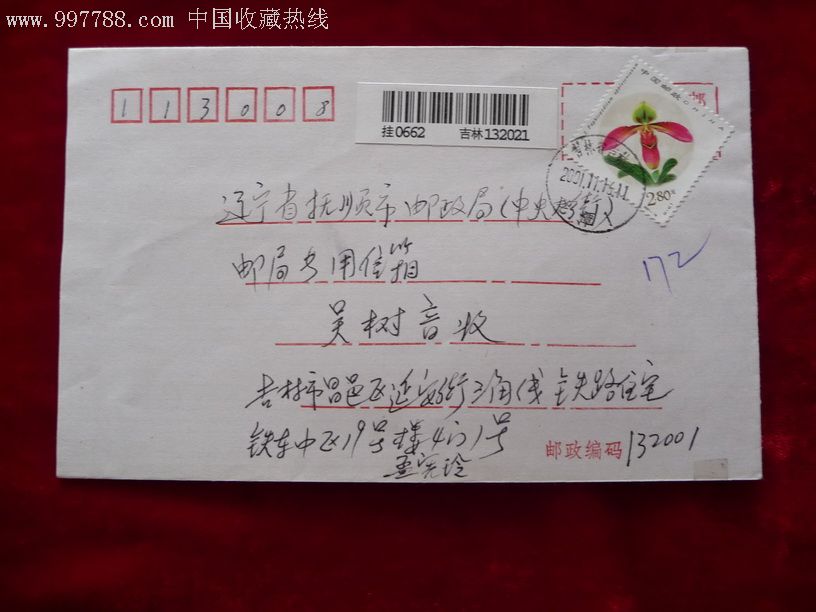 www.997788.com 中国收藏热线
113008
挂0662 吉林132021
中国邮政 CHINA
2.80元
2001.11.16.11
辽宁省抚顺市邮政局(中央路街)
邮局专用信箱
172
吴树音收
吉林市昌邑区延安街三角线 铁路住宅
铁东中区19号楼4门1号
邮政编码 132001
孟宪玲